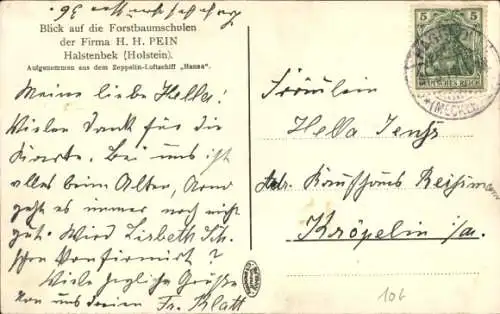 Blick auf die Forstbaumschulen
der Firma H. H. PEIN
Halstenbek (Holstein).
Aufgenommen aus dem Zeppelin-Luftschiff „Hansa“.
Meine liebe Hella!
Vielen Dank für die
Karte. Bei uns ist
alles beim Alten,
geht es immer noch nicht
gut. Wird Lisbeth
schon konfirmiert?
Viele herzliche Grüße
von uns dreien Fr. Klatt
5 5
DEUTSCHES REICH
(MECKL
Fräulein
Hella Jenß
Kaufhaus
Kröpelin i/M.
106